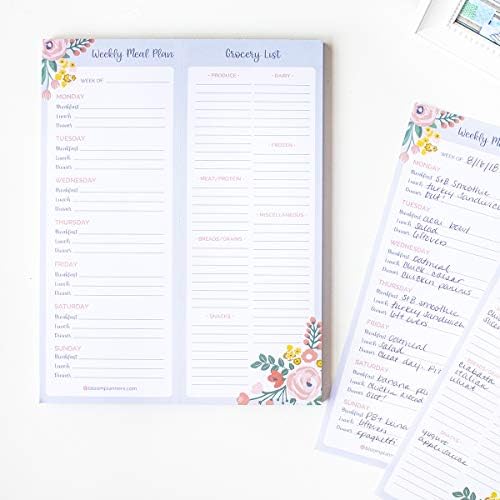 Weekly Meal Plan
WEEK OF:
MONDAY
Breakfast
Lunch
Dinner
TUESDAY
Breakfast
Lunch
Dinner
WEDNESDAY
Breakfast
Lunch
Dinner
THURSDAY
Breakfast
Lunch
Dinner
FRIDAY
Breakfast
Lunch
Dinner
SATURDAY
Breakfast
Lunch
Dinner
SUNDAY
Breakfast
Lunch
Dinner
@bloomplanners.com
Grocery List
- PRODUCE -
- MEAT/PROTEIN -
- BREADS/GRAINS -
- SNACKS -
- DAIRY -
- FROZEN -
- MISCELLANEOUS -
Weekly Me
WEEK OF: 8/18/18
MONDAY
Breakfast SB smoothie
Lunch turkey sandwich
Dinner
TUESDAY
Breakfast acai bowl
Lunch salad
Dinner leftovers
WEDNESDAY
Breakfast oatmeal
Lunch chick caesar
Dinner chicken paninis
THURSDAY
Breakfast SB smoothie
Lunch turkey sandwich
Dinner leftovers
FRIDAY
Breakfast oatmeal
Lunch salad
Dinner cheat day-
SATURDAY
Breakfast banana
Lunch
Dinner
SUNDAY
Breakfast PB+ banana
Lunch leftovers
Dinner spaghetti
@bloomplanners
ciabatta
italian
wheat
SNACKS
yogurt
applesauce